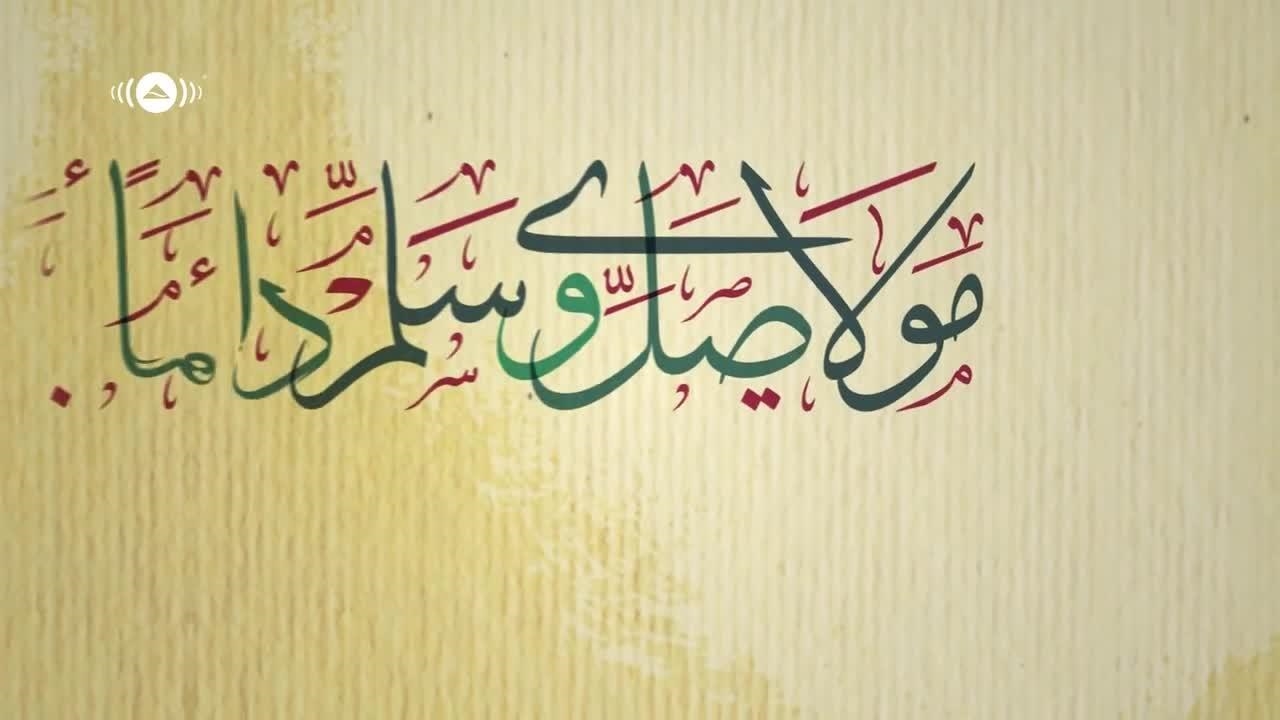 مَوْلَايَ صَلِّ وَسَلِّمْ دَائِمًا أَبَ